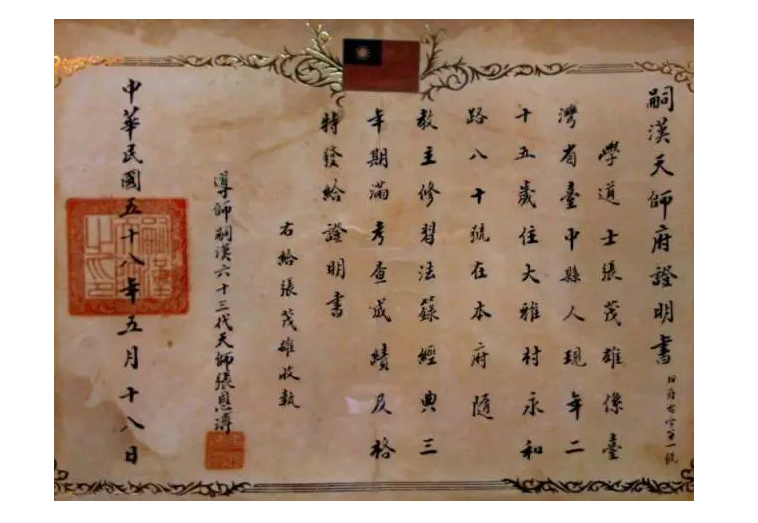 嗣漢天師府證明書
學道士張茂雄係臺
灣省臺中縣人現年二
十五歲住大雅村永和
路八十號在本府隨
教主修習法籙經典三
年期滿考查成績及格
特發給證明書
右給張茂雄收執
導師嗣漢六十三代天師張恩溥
中華民國五十八年五月十八日